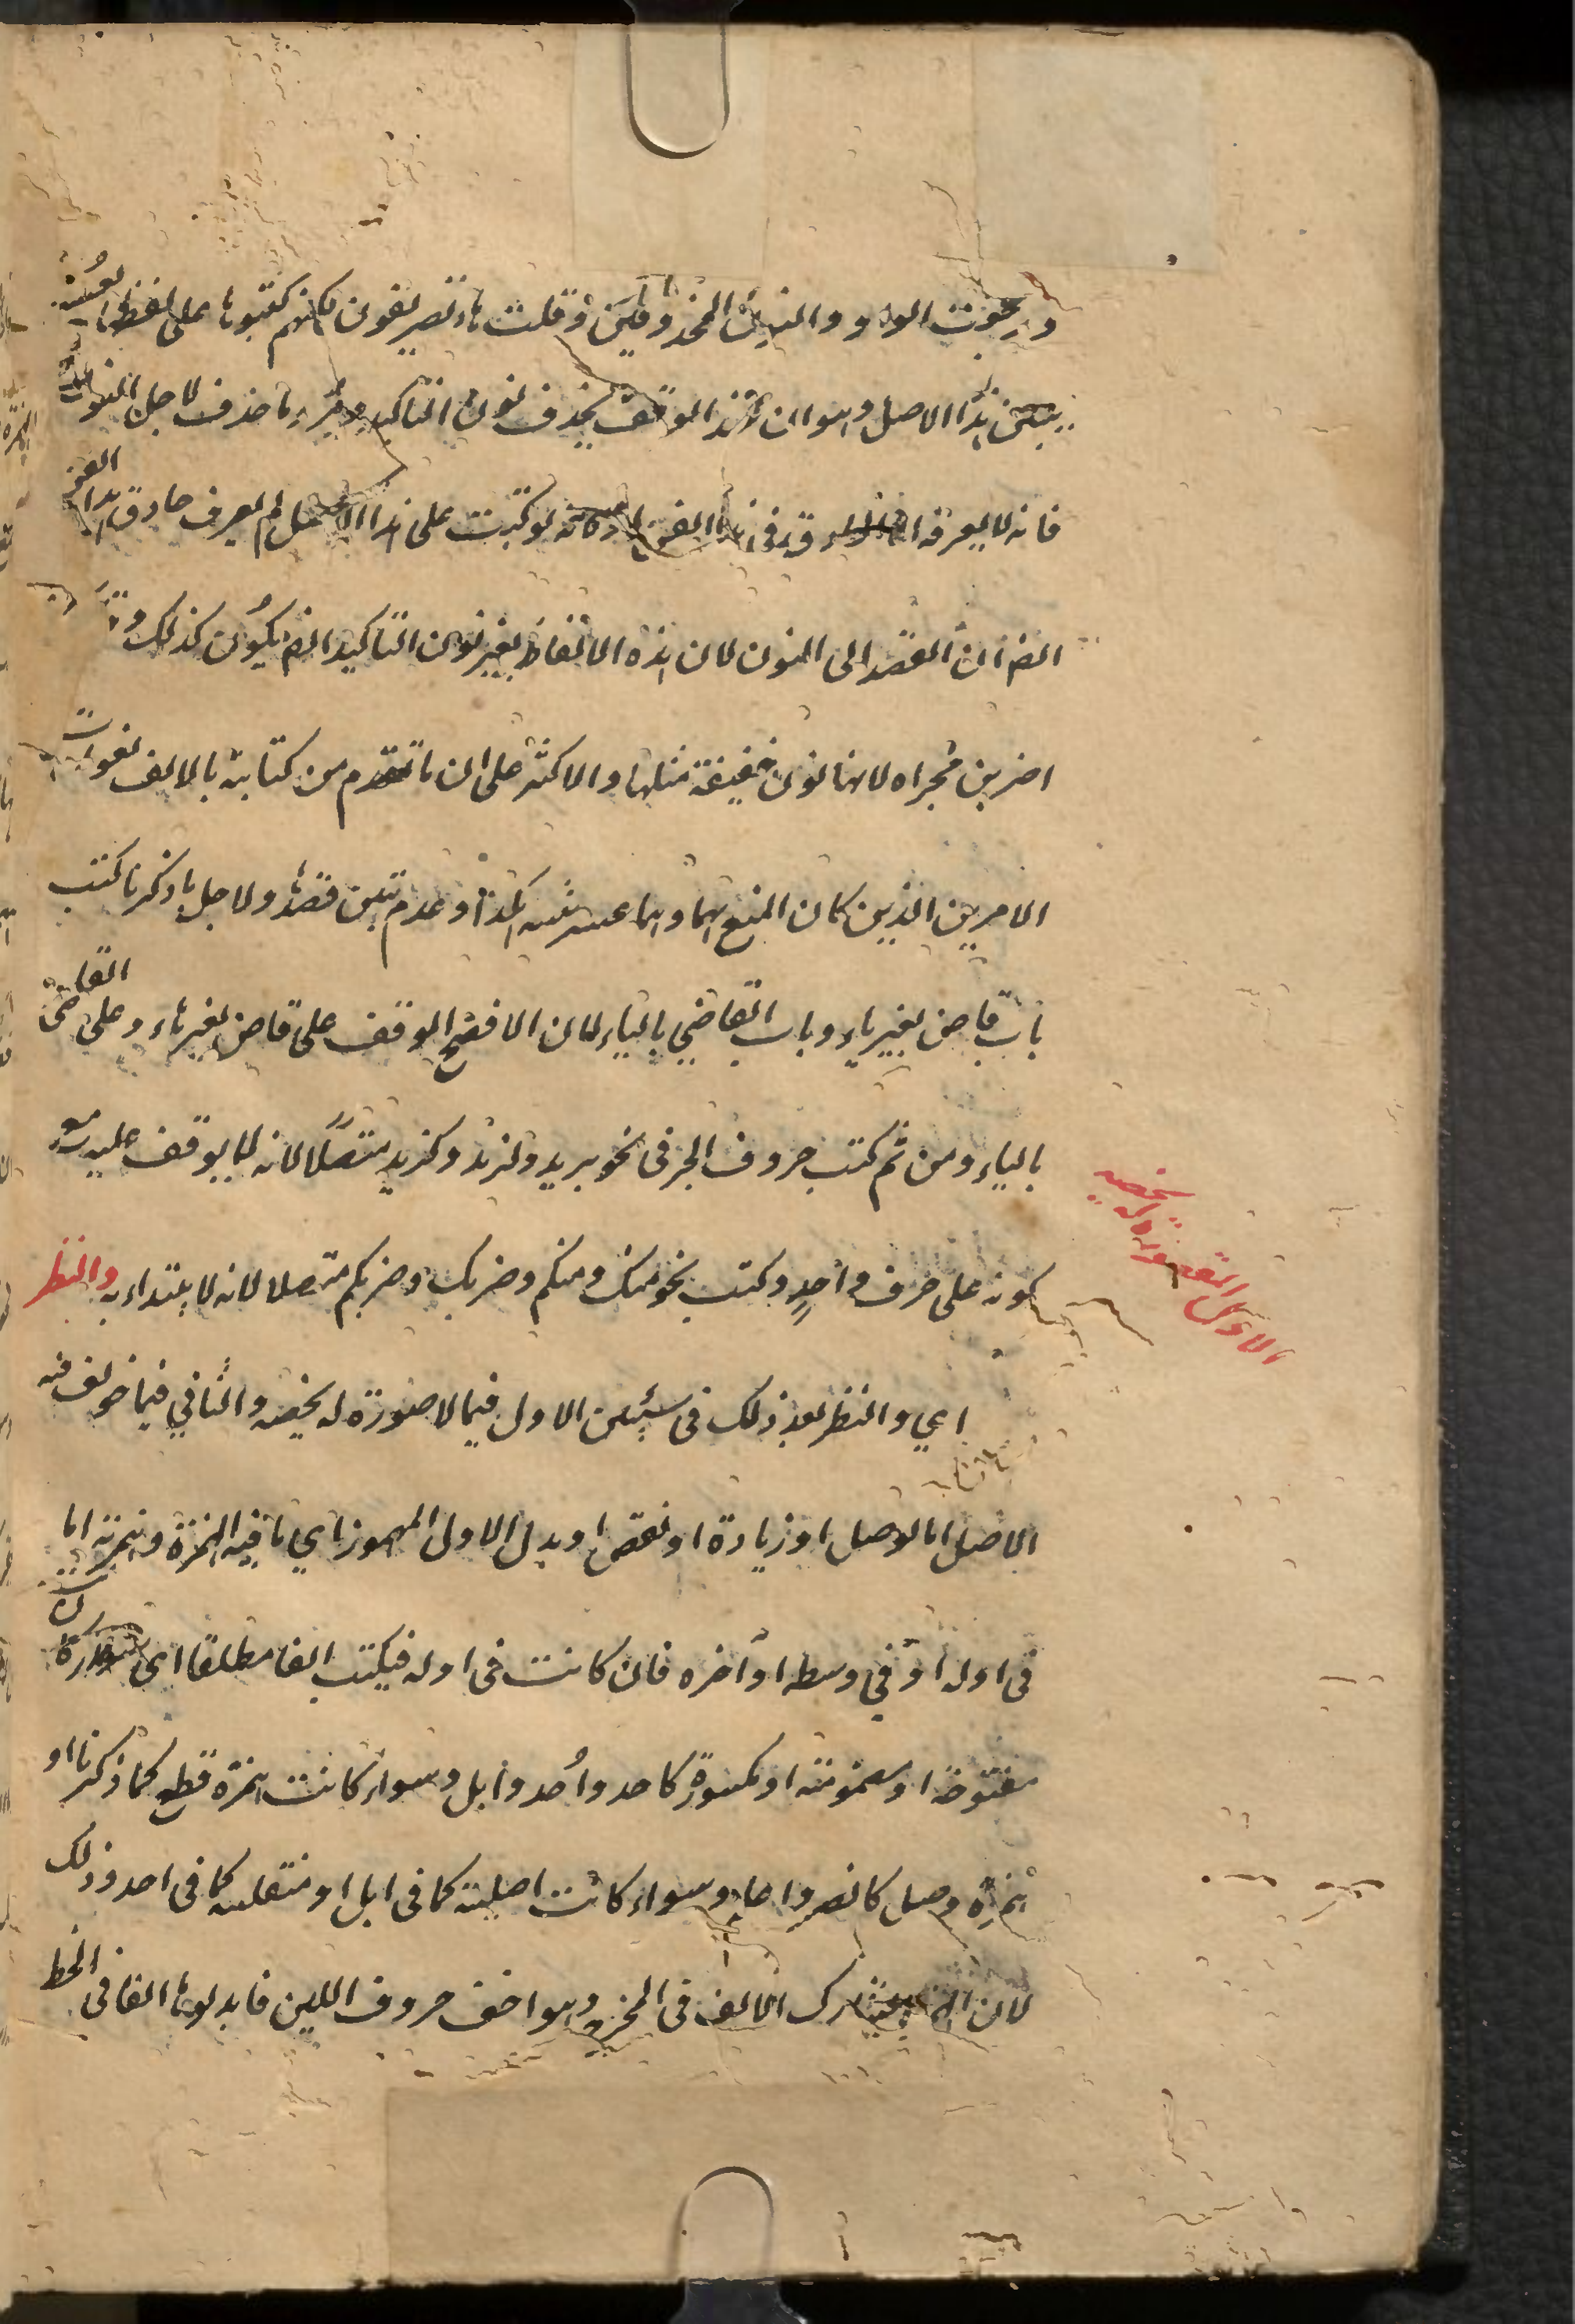 ورجعت الواو والنون المحذوفين وقلت هل تضربون لكنهم كتبوها على لفظها لعسر
تبين هذا الاصل وهو ان عند الوقف يحذف نون التاكيد ويرد ما حذف لاجل النون
فانه لا يعرفه الا حاذق في هذا الفن لانه لو كتبت على هذا الاصل لم يعرف حاذق هذا الفن
ايضا ان القصد الى النون لان هذه الالفاظ بغير نون التاكيد ايضا يكون كذلك
اضربن مجراه لانها نون خفيفة مثلها والاكثر على ان ما تقدم من كتابة بالالف لفوات
الامرين الذين كان المنع بهما وهما عسر تبينه او عدم تبين قصدها ولاجل ما ذكرنا كتب
باب قاض بغير ياء وباب القاضي بالياء لان الافصح الوقف على قاض بغير ياء وعلى القاضي
بالياء ومن ثم كتب حروف الجر في نحو بزيد ولزيد وكزيد متصلا لانه لا يوقف عليه
كونه على حرف واحد وكتب نحو منك ومنكم وضربك وضربكم متصلا لانه لا يبتداء به والنظر
اي والنظر بعد ذلك في شيئين الاول فيما لا صورة له يخصه والثاني فيما خولف فيه
الاصل اما لوصل او زيادة او نقص او بدل الاول المهموز اي ما فيه الهمزة وهمزته اما
في اوله او في وسطه او آخره فان كانت في اوله فيكتب الفا مطلقا اي سواء كانت
مفتوحة او مضمومة او مكسورة كاحد واُحد وابل وسواء كانت همزة قطع كما ذكرنا او
همزة وصل كانصر واعلم وسواء كانت اصلية كما في ابل او منقلبة كما في احد وذلك
لان الهمزة يشارك الالف في المخرج وهو اخف حروف اللين فابدلوها الفا في الخط
الاول لا صورة له يخصه